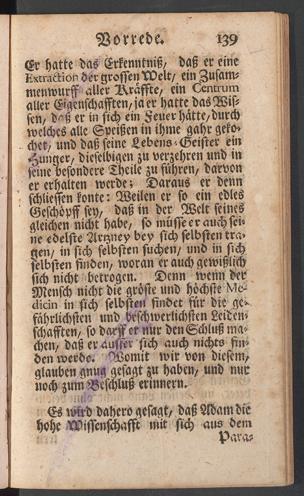 Vorrede. 139
Er hatte das Erkenntniß, daß er eine
Extraction der grossen Welt, ein Zusam-
menwurff aller Kräffte, ein Centrum
aller Eigenschafften, ja er hatte das Wis-
sen, daß er in sich ein Feuer hätte, durch
welches alle Speißen in ihme gahr geko-
chet, und daß seine Lebens-Geister ein
Hunger, dieselbigen zu verzehren und in
seine besondere Theile zu führen, darvon
er erhalten werde; Daraus er denn
schliessen konte: Weilen er so ein edles
Geschöpff sey, daß in der Welt seines
gleichen nicht habe, so müsse er auch sei-
ne edelste Artzney bey sich selbsten tra-
gen, in sich selbsten suchen, und in sich
selbsten finden, woran er auch gewißlich
sich nicht betrogen. Denn wenn der
Mensch nicht die gröste und höchste Me-
dicin in sich selbsten findet für die ge-
fährlichsten und beschwerlichsten Leiden-
schafften, so darff er nur den Schluß ma-
chen, daß er ausser sich auch nichts fin-
den werde. Womit wir von diesem,
glauben gnug gesagt zu haben, und nur
noch zum Beschluß erinnern.
Es wird dahero gesagt, daß Adam die
hohe Wissenschafft mit sich aus dem
Para-